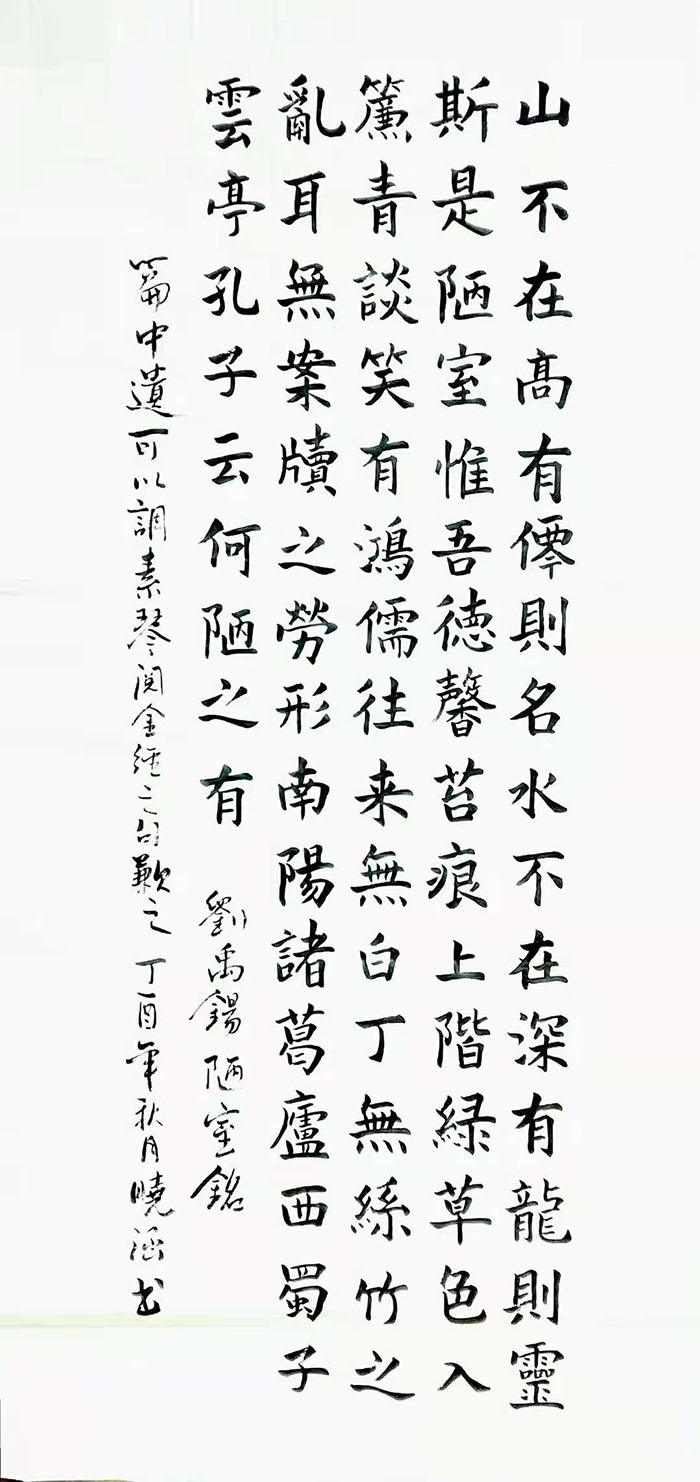 山不在高有僊則名水不在深有龍則靈
斯是陋室惟吾德馨苔痕上階緑草色入
簾青談笑有鴻儒往来無白丁無絲竹之
亂耳無案牘之勞形南陽諸葛廬西蜀子
雲亭孔子云何陋之有
劉禹錫陋室銘
篇中遺可以調素琴閱金經之句歉之丁酉年秋月曉涵书